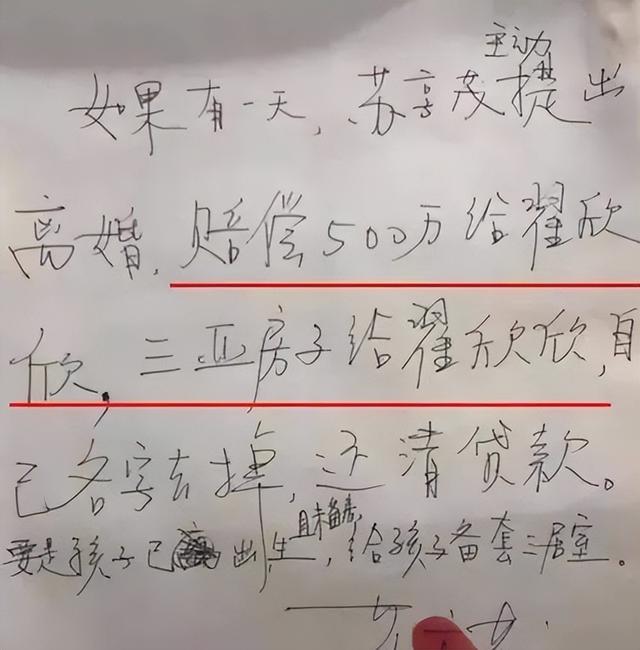 主动
如果有一天，苏享茂提出
离婚，赔偿500万给翟欣
欣，三亚房子给翟欣欣，自
己名字去掉，还清贷款。
要是孩子已出生，给孩子备套三居室。